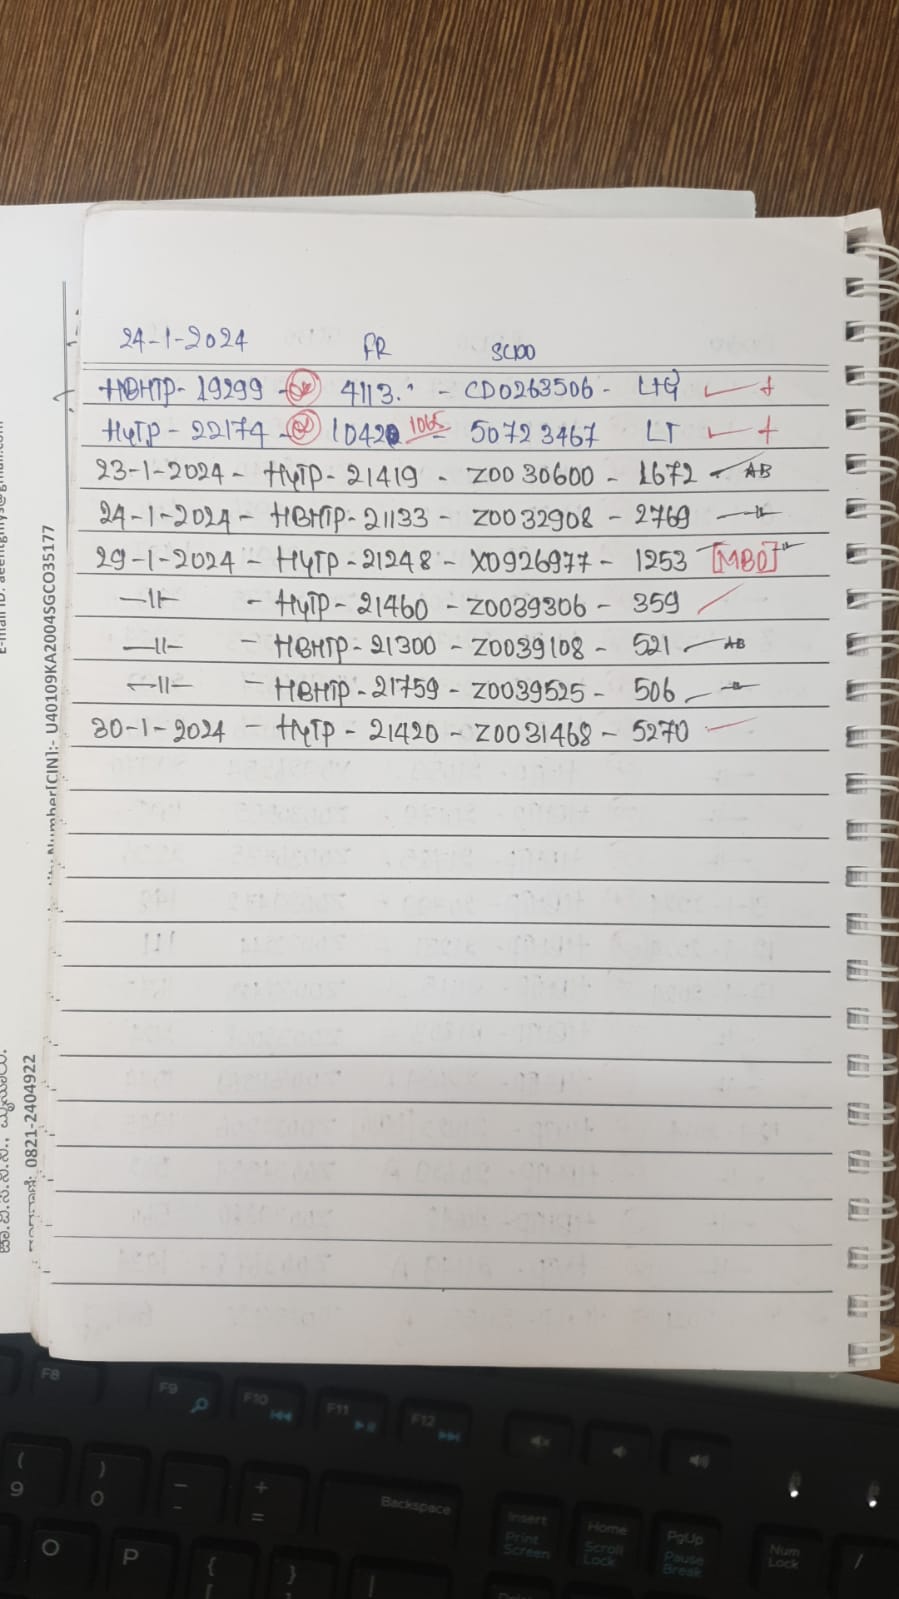 24-1-2024 FR SCDO
HBHTP-19299 - 4113. - CD0263506 - LTG
HyTP-22174 - 1042 1065 - 50723467 LT
23-1-2024 - HyTP-21419 - Z0030600 - 1672 AB
24-1-2024 - HBHTP-21133 - Z0032908 - 2769 —"—
29-1-2024 - HyTP-21248 - X0926977 - 1253 [MBD]
—11— - HyTP-21460 - Z0039306 - 359
—11— - HBHTP-21300 - Z0039108 - 521 AB
—11— - HBHTP-21759 - Z0039525 - 506 —"—
30-1-2024 - HyTP-21420 - Z0031468 - 5270
Number[CIN]:- U40109KA2004SGCO35177
0821-2404922
F8 F9 F10 F11 F12
( 9 ) 0 - - + = Backspace Insert Print Screen Home Scroll Lock PgUp Pause Break Num Lock /
O P { [ }